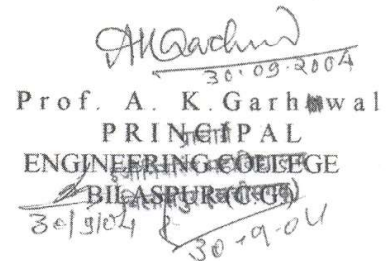 30.09.2004
Prof. A. K. Garhewal
PRINCIPAL
ENGINEERING COLLEGE
BILASPUR (C.G.)
30/9/04
30-9-04